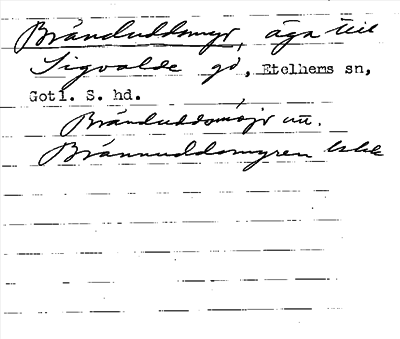 Bränduddsmyr, äga till
Sigvalde gd, Etelhems sn,
Gotl. S. hd.
Bränduddsmöjr un.
Brännuddsmyren